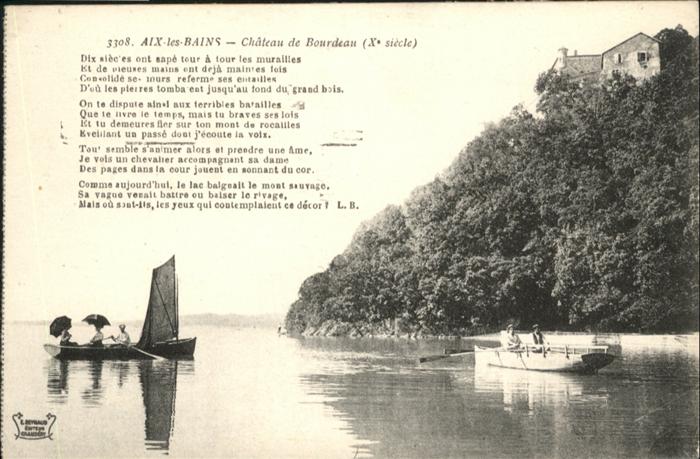 3308. AIX-les-BAINS — Château de Bourdeau (Xe siècle)
Dix siècles ont sapé tour à tour les murailles
Et de pieuses mains ont déjà maintes fois
Consolidé ses tours refermé ses entailles
D'où les pierres tombaient jusqu'au fond du grand bois.
On te dispute ainsi aux terribles batailles
Que te livre le temps, mais tu braves ses lois
Et tu demeures fier sur ton mont de rocailles
Eveillant un passé dont j'écoute la voix.
Tout semble s'animer alors et prendre une âme,
Je vois un chevalier accompagnant sa dame
Des pages dans la cour jouent en sonnant du cor.
Comme aujourd'hui, le lac baignait le mont sauvage,
Sa vague venait battre ou baiser le rivage,
Mais où sont-ils, les yeux qui contemplaient ce décor ? L. B.
E. REYNAUD
ÉDITEUR
CHAMBÉRY